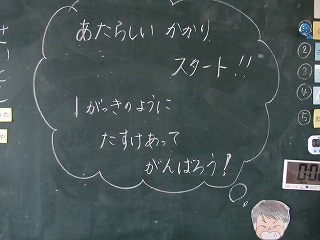 あたらしい かかり
スタート!!
1がっきのように
たすけあって
がんばろう!
②
③
④
⑤